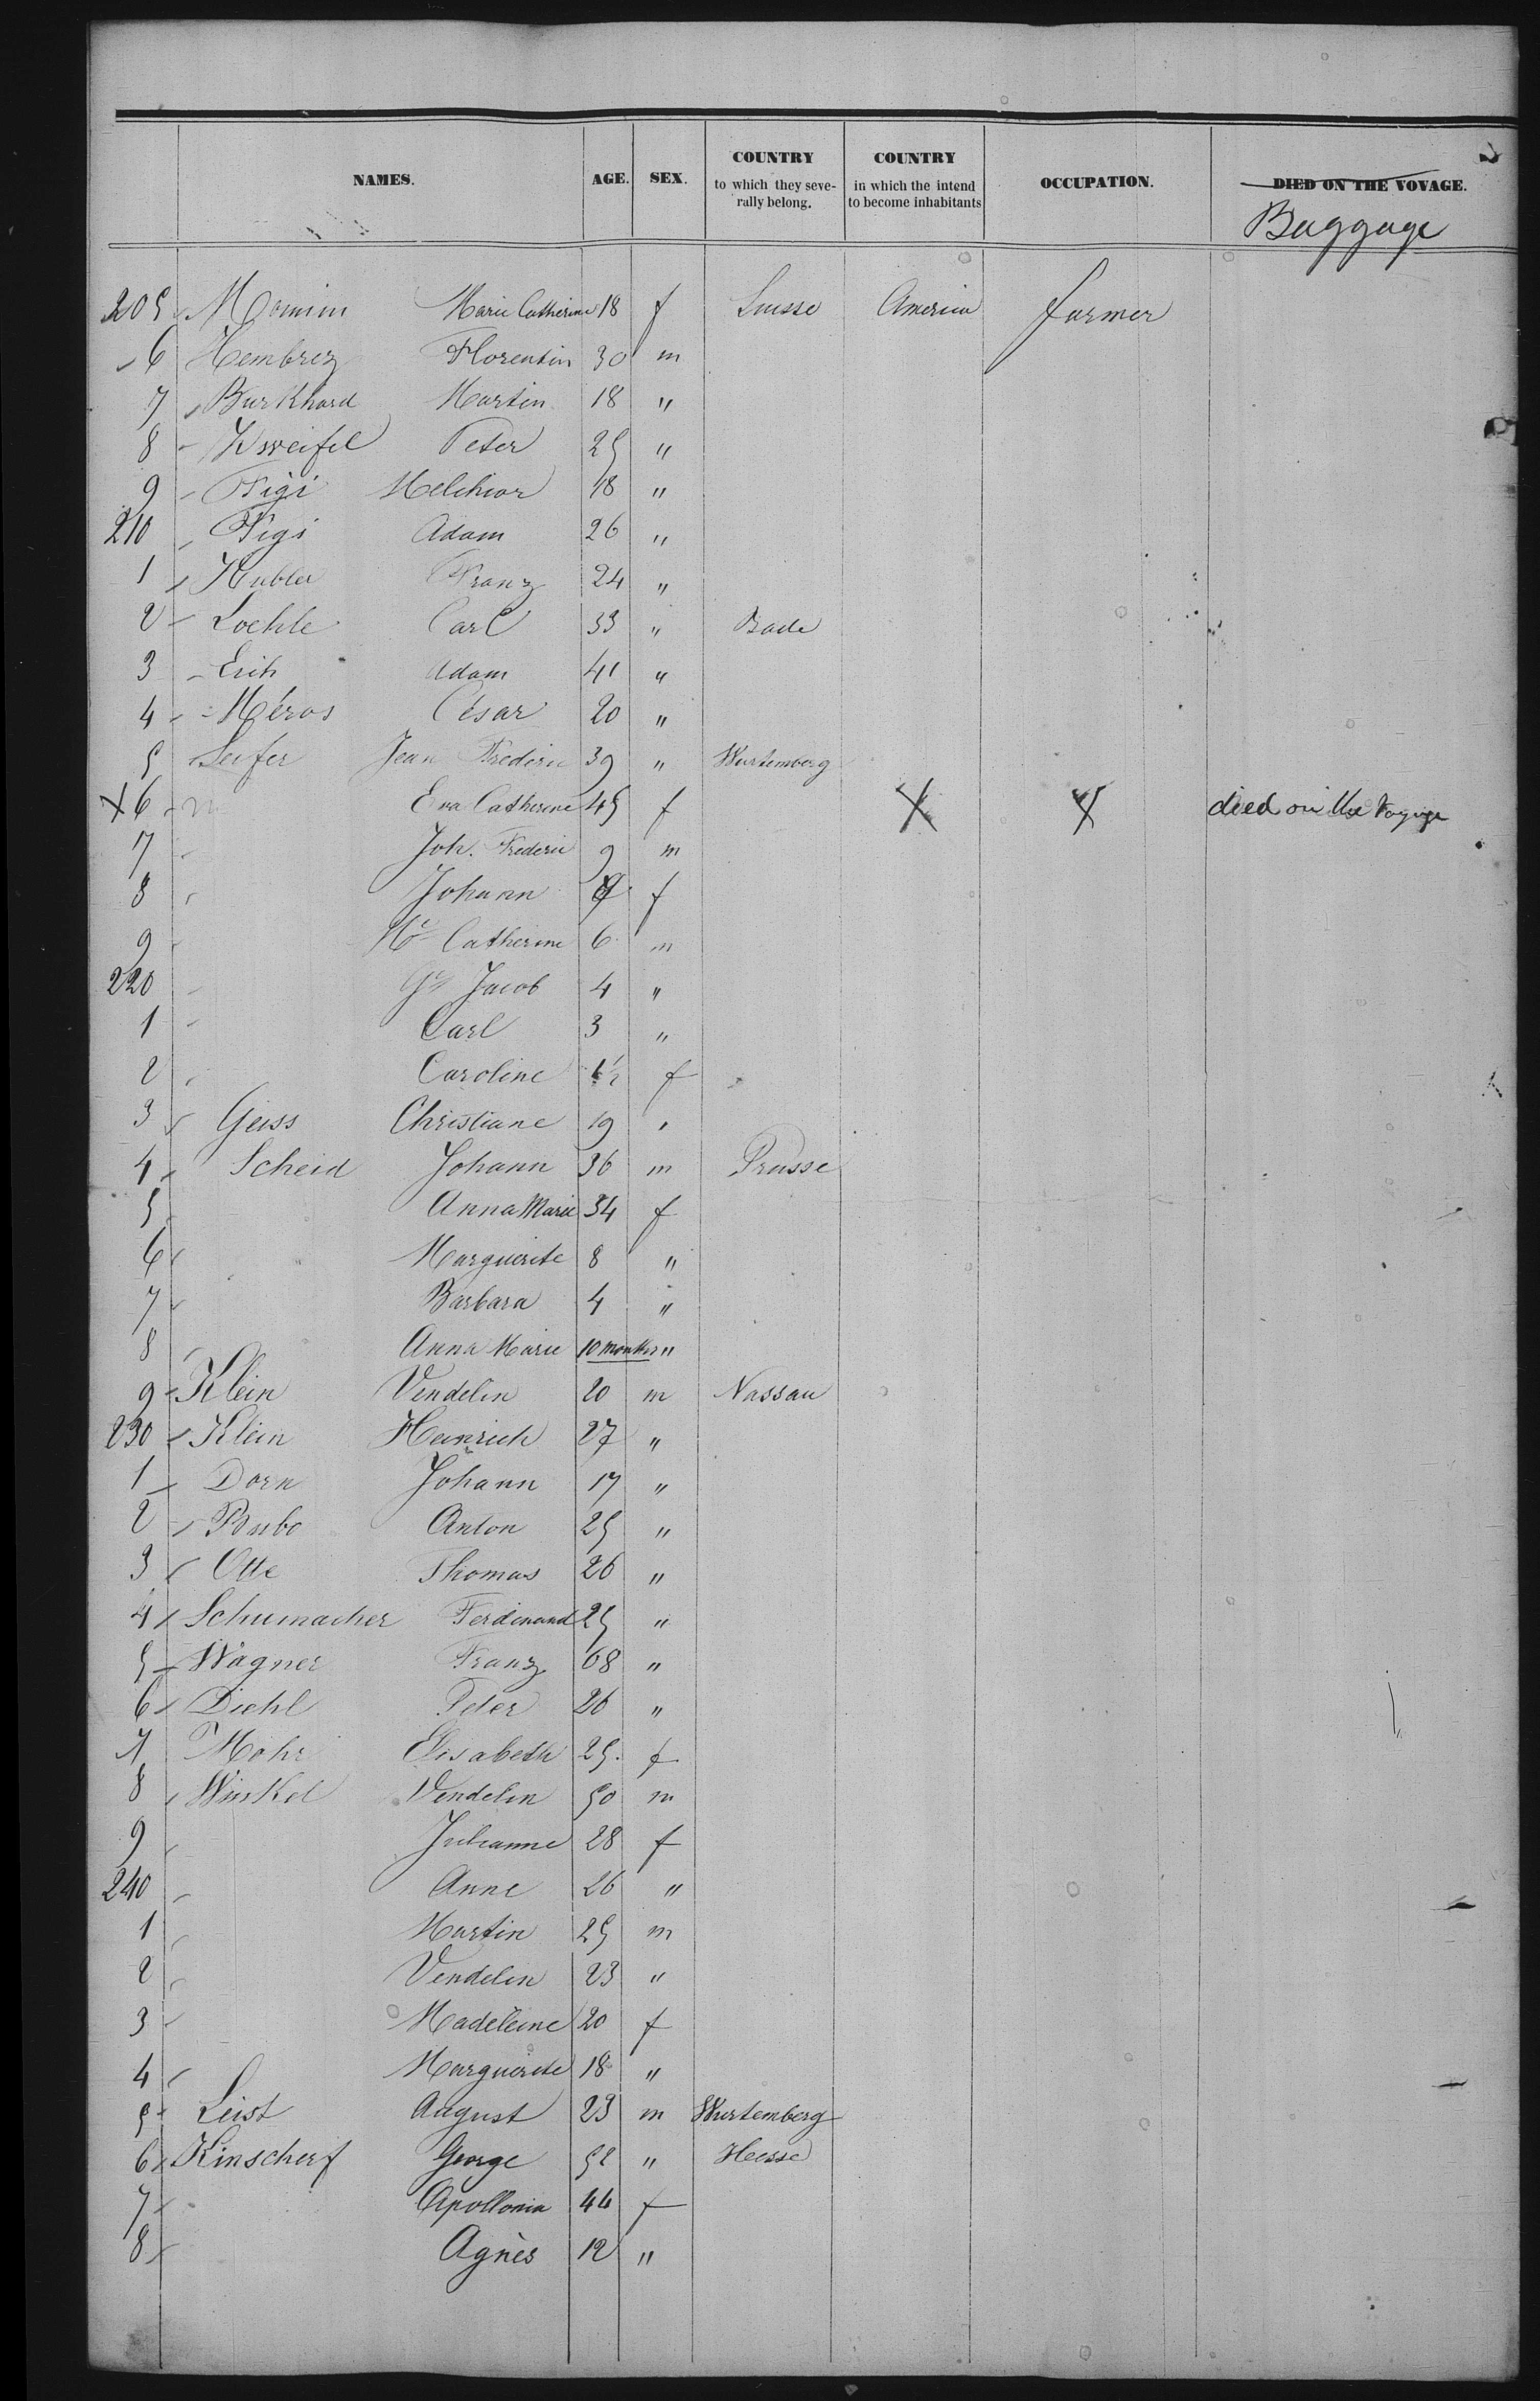 NAMES. AGE. SEX. COUNTRY to which they seve- rally belong. COUNTRY in which the intend to become inhabitants OCCUPATION. DIED ON THE VOYAGE.
Baggage
205 Marie Catherine 18 f Suisse America farmer
6 Hembrez Florentin 30 m
7 Burkhard Martin 18 "
8 Zweifel Peter 25 "
9 Figi Melchior 18 "
210 Figi Adam 26 "
1 Kubler Franz 24 "
2 Loehle Carl 33 " Bade
3 Erih Adam 41 "
4 Méros César 20 "
5 Seifer Jean Frederic 39 " Wurtemberg
X 6 Eva Catherine 45 f X X died on the Voyage
7 Joh. Frederic 9 m
8 Johann f
9 Mie Catherine 6 m
220 Gg Jacob 4 "
1 Carl 3 "
2 Caroline 1½ f
3 Geiss Christiane 19 "
4 Scheid Johann 36 m Prusse
5 Anna Marie 34 f
6 Marguerite 8 "
7 Barbara 4 "
8 Anna Marie 10 months "
9 Klein Vendelin 20 m Nassau
230 Klein Heinrich 27 "
1 Dorn Johann 17 "
2 Bubo Anton 25 "
3 Otte Thomas 26 "
4 Schumacher Ferdinand 25 "
5 Wagner Franz 68 "
6 Diehl Peter 26 "
7 Mohr Elisabeth 25. f
8 Winkel Vendelin 50 m
9 Julianne 28 f
240 Anne 26 "
1 Martin 25 m
2 Vendelin 23 "
3 Madeleine 20 f
4 Marguerite 18 "
5 Leist August 23 m Wurtemberg
6 Kinscherf George 52 " Hesse
7 Apollonia 44 f
8 Agnès 12 "